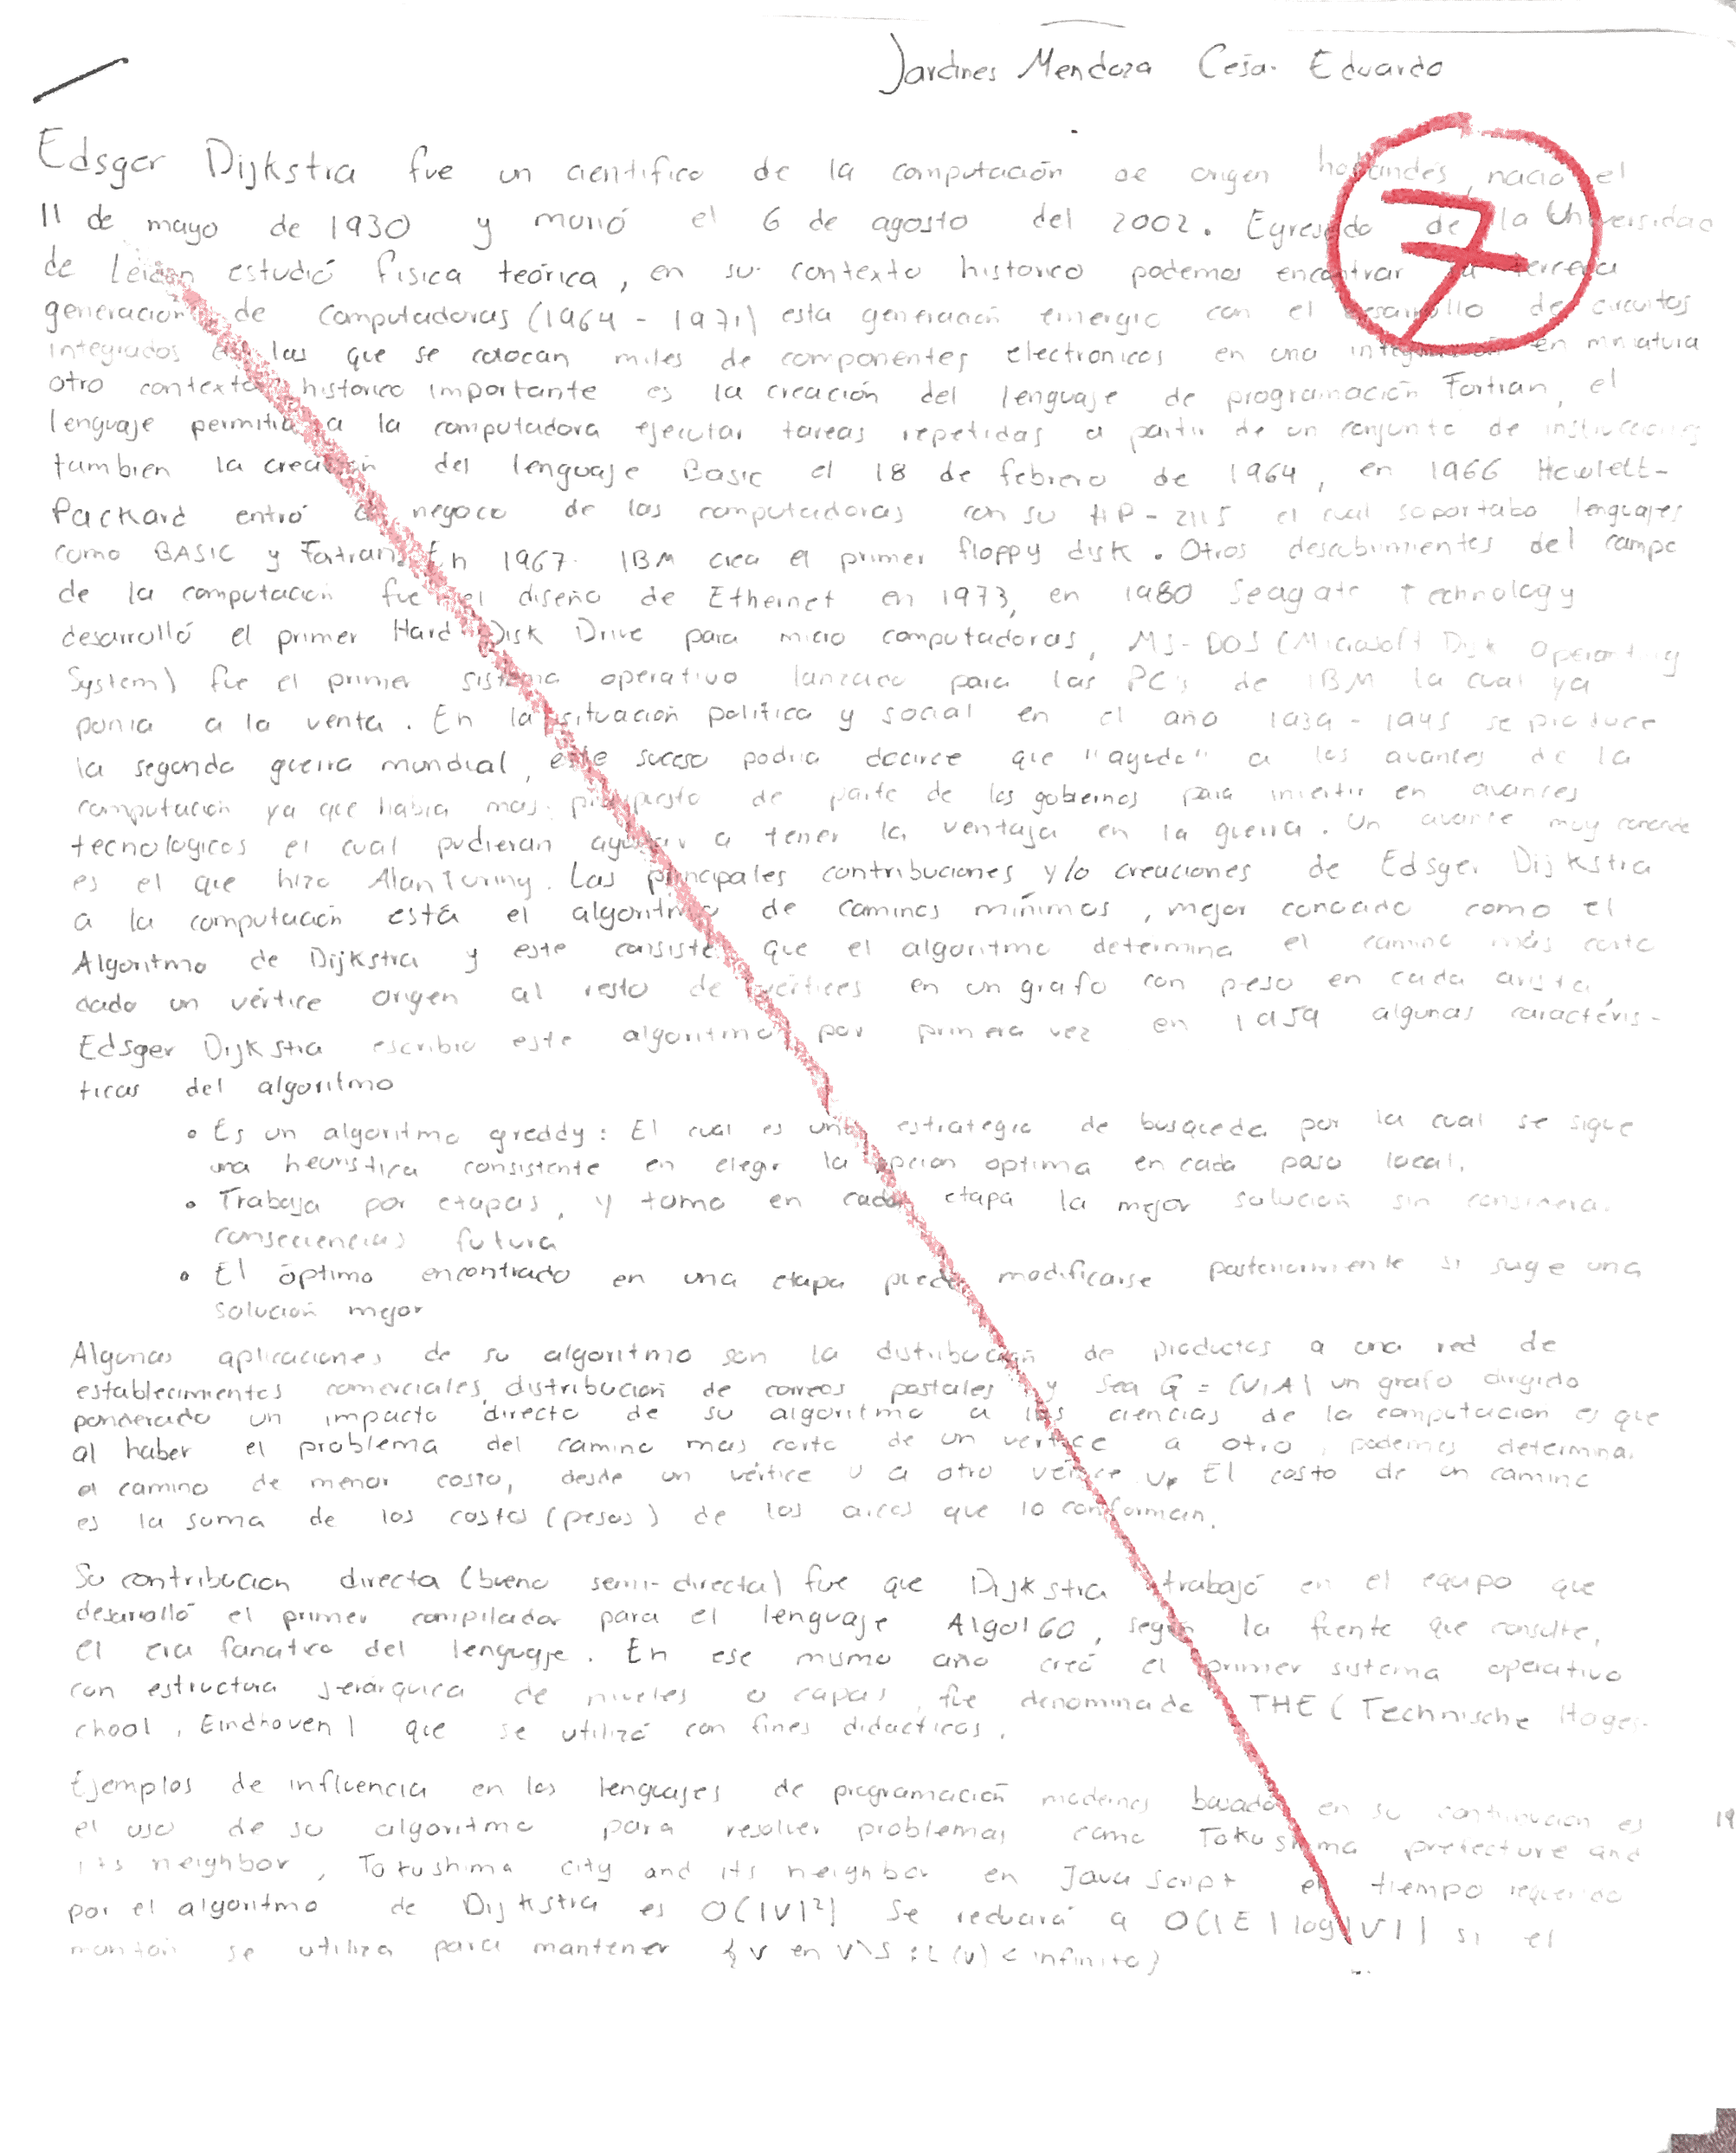 Jardines Mendoza Cesar Eduardo
7
Edsger Dijkstra fue un cientifico de la computación de origen holandés, nació el
11 de mayo de 1930 y murió el 6 de agosto del 2002. Egresado de la Universidad
de Leiden estudió fisica teórica, en su contexto historico podemos encontrar la tercera
generación de computadoras (1964 - 1971) esta generación emergio con el desarrollo de circuitos
integrados en las que se colocan miles de componentes electronicos en una integración en miniatura
otro contexto historico importante es la creación del lenguaje de programación Fortran, el
lenguaje permitia a la computadora ejecutar tareas repetidas a partir de un conjunto de instrucciones
tambien la creación del lenguaje Basic el 18 de febrero de 1964, en 1966 Hewlett-
Packard entró al negocio de las computadoras con su HP-2115 el cual soportaba lenguajes
como BASIC y Fortran. En 1967 IBM crea el primer floppy disk. Otros descubrimientos del campo
de la computación fue el diseño de Ethernet en 1973, en 1980 Seagate Technology
desarrolló el primer Hard Disk Drive para micro computadoras, MS-DOS (Microsoft Disk Operating
System) fue el primer sistema operativo lanzado para las PC's de IBM la cual ya
ponia a la venta. En la situación politica y social en el año 1939 - 1945 se produce
la segunda guerra mundial, este suceso podria decirce que "ayudo" a los avances de la
computación ya que habia mas presupuesto de parte de los gobiernos para invertir en avances
tecnologicos el cual pudieran ayudar a tener la ventaja en la guerra. Un avance muy conocido
es el que hizo Alan Turing. Las principales contribuciones y/o creaciones de Edsger Dijkstra
a la computación está el algoritmo de caminos mínimos, mejor conocido como el
Algoritmo de Dijkstra y este consiste que el algoritmo determina el camino más corto
dado un vértice origen al resto de vértices en un grafo con peso en cada arista,
Edsger Dijkstra escribio este algoritmo por primera vez en 1959 algunas caracteris-
ticas del algoritmo
• Es un algoritmo greddy: El cual es una estrategia de busqueda por la cual se sigue
una heuristica consistente en elegir la opcion optima en cada paso local.
• Trabaja por etapas, y toma en cada etapa la mejor solución sin considerar
consecuencias futura
• El óptimo encontrado en una etapa puede modificarse posteriormente si suge una
solución mejor
Algunas aplicaciones de su algoritmo son la distribución de productos a una red de
establecimientos comerciales, distribución de correos postales y Sea G = (V,A) un grafo dirigido
ponderado un impacto directo de su algoritmo a las ciencias de la computación es que
al haber el problema del camino mas corto de un vertice a otro, podemos determinar
el camino de menor costo, desde un vértice u a otro vértice v. El costo de un camino
es la suma de los costos (pesos) de los arcos que lo conforman.
Su contribucion directa (bueno semi-directa) fue que Dijkstra trabajó en el equipo que
desarrolló el primer compilador para el lenguaje Algol 60, segun la fuente que consulte,
el era fanatico del lenguaje. En ese mismo año creó el primer sistema operativo
con estructura jerárquica de niveles o capas, fue denominado THE (Technische Hoges-
chool, Eindhoven) que se utilizó con fines didacticos.
Ejemplos de influencia en los lenguajes de programación modernos basados en su contribucion es
el uso de su algoritmo para resolver problemas como Tokushima prefecture and
its neighbor, Tokushima city and its neighbor en Java Script el tiempo requerido
por el algoritmo de Dijkstra es O(|V|²) Se reducirá a O(|E|log|V|) si el
montón se utiliza para mantener {v en V\S : L(v) < infinito}
19